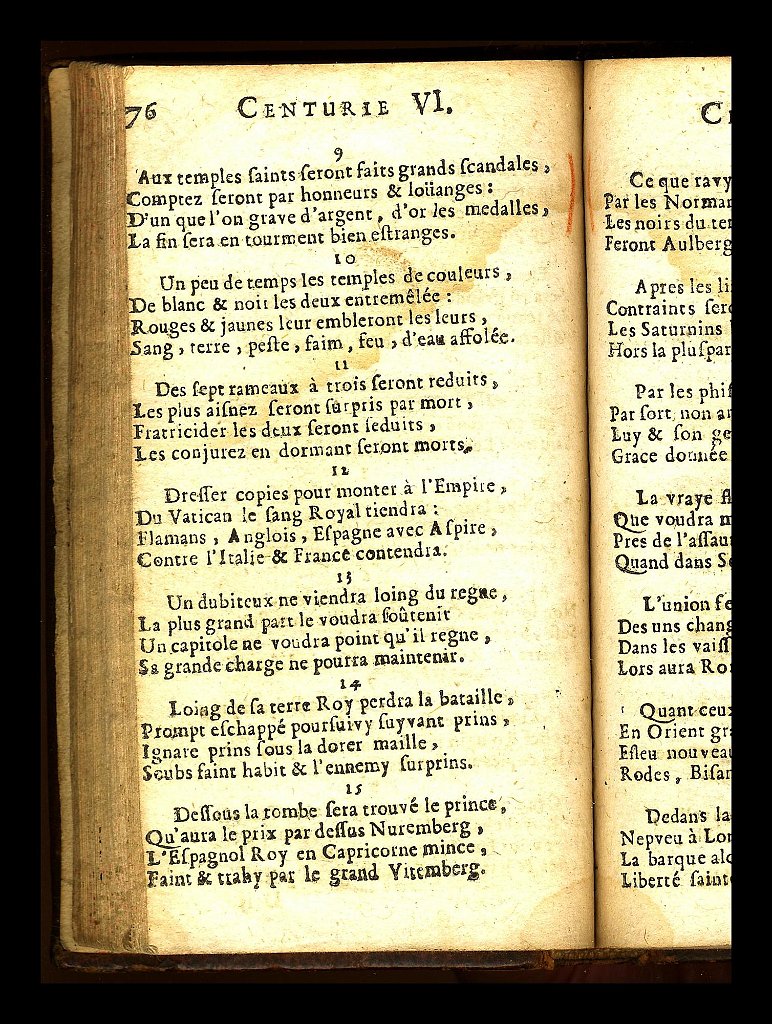 76 CENTURIE VI.
9
Aux temples ſaints ſeront faits grands ſcandales,
Comptez ſeront par honneurs & loüanges :
D'un que l'on grave d'argent, d'or les medalles,
La fin ſera en tourment bien eſtranges.
10
Un peu de temps les temples de couleurs,
De blanc & noir les deux entremêlée :
Rouges & jaunes leur embleront les leurs,
Sang, terre, peſte, faim, feu, d'eau affolée.
11
Des ſept rameaux à trois ſeront reduits,
Les plus aiſnez ſeront ſurpris par mort,
Fratricider les deux ſeront ſeduits,
Les conjurez en dormant ſeront morts.
12
Dreſſer copies pour monter à l'Empire,
Du Vatican le ſang Royal tiendra :
Flamans, Anglois, Eſpagne avec Aſpire,
Contre l'Italie & France contendra.
13
Un dubiteux ne viendra loing du regne,
La plus grand part le voudra ſoûtenir
Un capitole ne voudra point qu'il regne,
Sa grande charge ne pourra maintenir.
14
Loing de ſa terre Roy perdra la bataille,
Prompt eſchappé pourſuivy ſuyvant prins,
Ignare prins ſous la dorer maille,
Soubs faint habit & l'ennemy ſurprins.
15
Deſſous la tombe ſera trouvé le prince,
Qu'aura le prix par deſſus Nuremberg,
L'Eſpagnol Roy en Capricorne mince,
Faint & trahy par le grand Vitemberg.
Ce que ravy
Par les
Les noirs du
Feront Aulberg
Apres les
Contraints
Les Saturnins
Hors la
Par les
Par ſort non
Luy & ſon
Grace donnée
La vraye
Que voudra
Pres de
Quand dans
L'union
Des uns
Dans les
Lors aura
Quant
En Orient
Eſleu
Rodes,
Dedans la
Nepveu à
La barque
Liberté